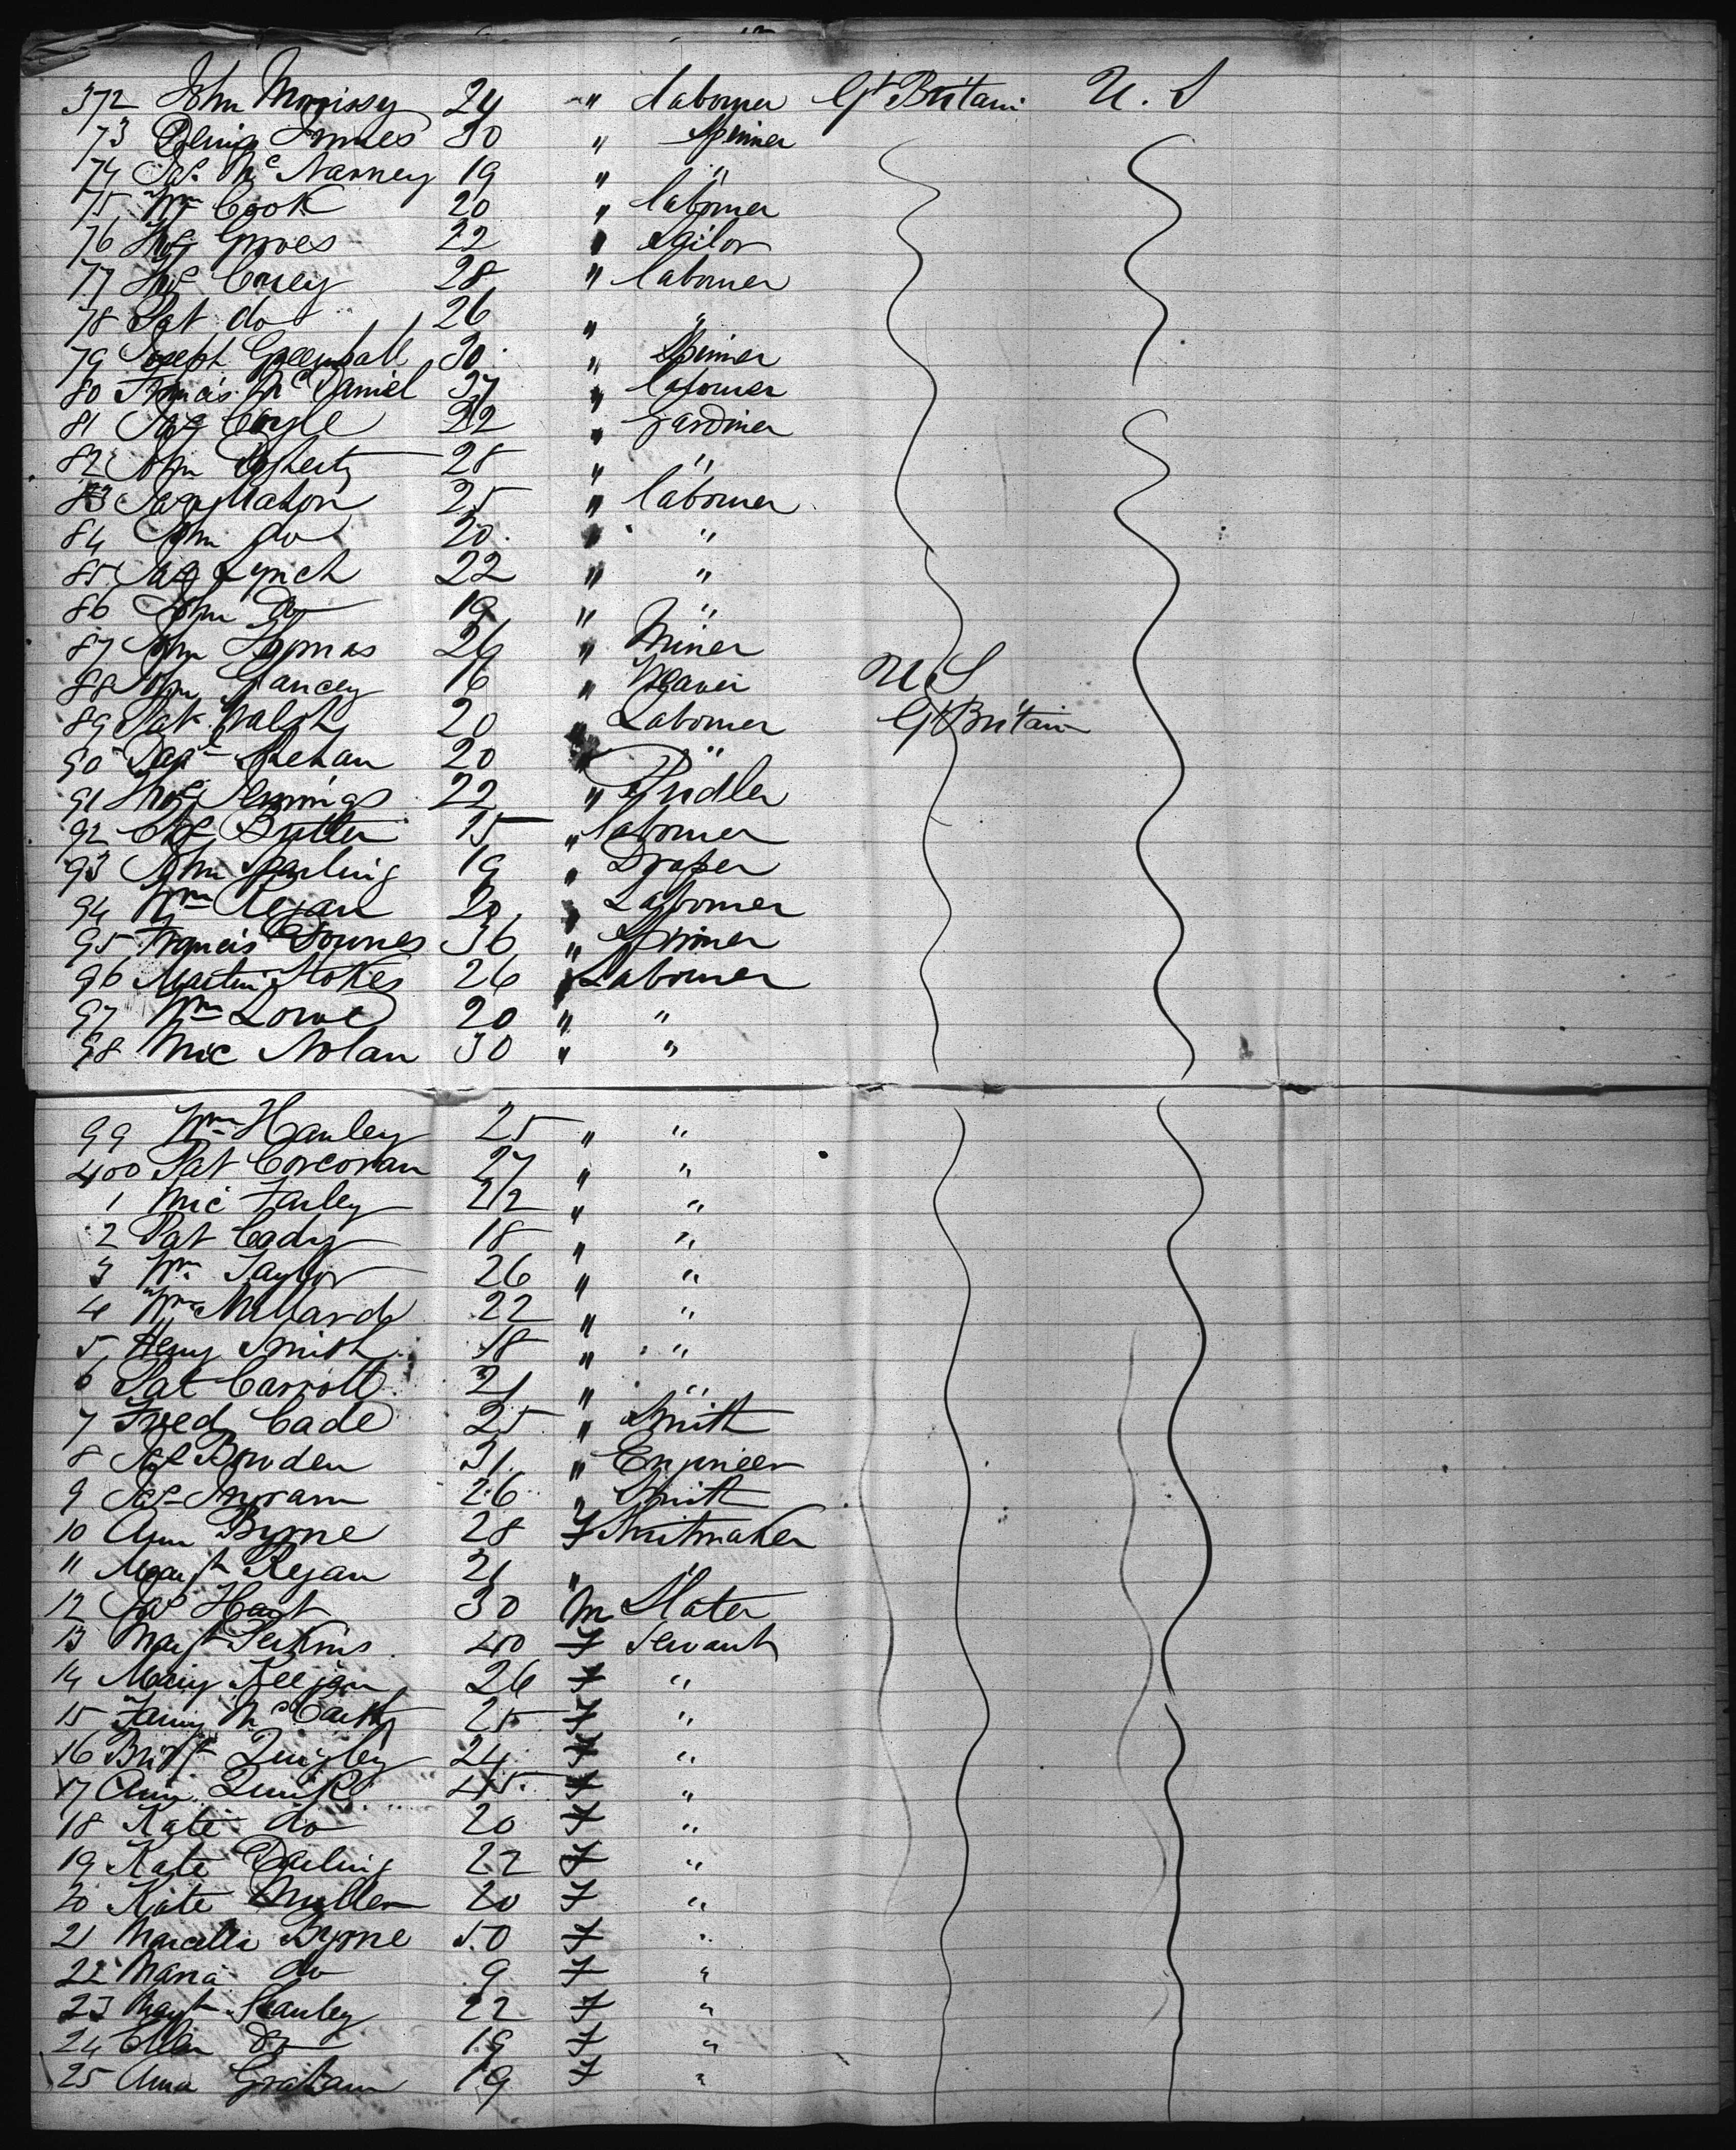 372 John Morrissy 24 " Laborer Gt Britain U. S
73 30 " Spinner
74 Jas Mc Narney 19 " "
75 Wm Cook 20 " laborer
76 Thos Groves 22 " Sailor
77 Thos 28 " laborer
78 Pat do 26 " "
79 Joseph Greenhall 30 " Spinner
80 Francis Mc Daniel 37 " laborer
81 Jas Coyle 22 " gardiner
82 John Doherty 28 " "
83 Jas Mahon 25 " laborer
84 John do 20 " "
85 Jas Lynch 22 " "
86 John Do 19 " "
87 John Thomas 26 " Miner
88 John Glancey 16 " Weaver U S
89 Pat Walsh 20 " Laborer Gt Britain
90 Shehan 20 " "
91 Thos Jennings 22 " Pudler
92 Chs Butler 15 " laborer
93 John Sparling 19 " Draper
94 Wm Regan 20 " Laborer
95 Francis Downes 36 " Spinner
96 Martin Stokes 26 " Laborer
97 Wm Lowe 20 " "
98 Mic Nolan 30 " "
99 Wm Hanley 25 " "
400 Pat Corcoran 27 " "
1 Mic Farley 22 " "
2 Pat Cady 18 " "
3 Wm Taylor 26 " "
4 Wm Millard 22 " "
5 Henry Smith 18 " "
6 Pat Carroll 21 " "
7 Fred Cade 25 " Smith
8 Jos Bowden 31 " Engineer
9 Jas Ingram 26 " Smith
10 Ann Byrne 28 F Suitmaker
11 Margt Regan 21 " "
12 Jas Hart 30 M Slater
13 Margt Perkins 40 F Servant
14 Mary Keegan 26 F "
15 Fanny Mc Carthy 25 F "
16 Bridgt Quigley 24 F "
17 Ann Quirk 45 F "
18 Kate do 20 F "
19 Kate Darling 22 F "
20 Kate Mullen 20 F "
21 Marcella Byrne 50 F "
22 Maria do 9 F "
23 Margt 22 F "
24 Ellen Do 19 F "
25 Anna Graham 19 F "